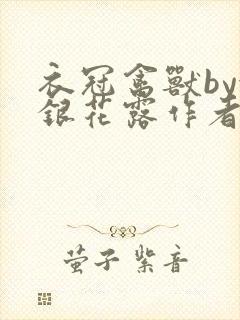 衣冠禽獸by
銀花露作者
萤子紫音